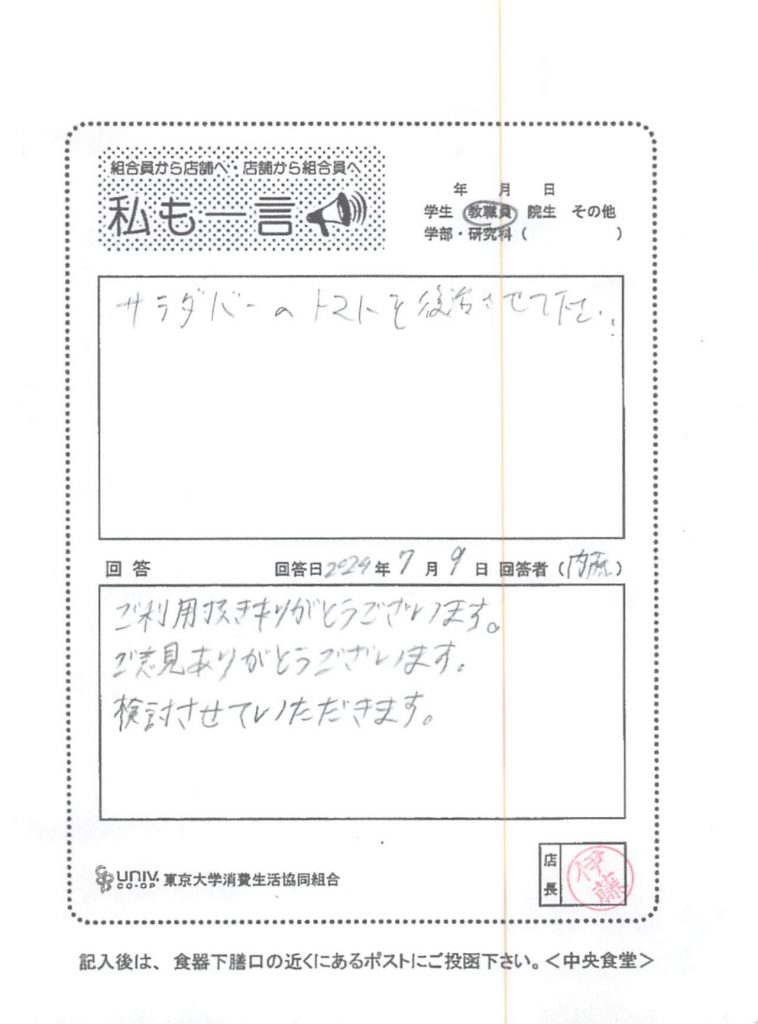 組合員から店舗へ・店舗から組合員へ
私も一言
年 月 日
学生 教職員 院生 その他
学部・研究科( )
サラダバーのトマトを復活させて下さい!
回答 回答日2024年7月9日 回答者(内藤)
ご利用頂きありがとうございます。
ご意見ありがとうございます。
検討させていただきます。
UNIV. CO-OP 東京大学消費生活協同組合
店長 伊藤
記入後は、食器下膳口の近くにあるポストにご投函下さい。<中央食堂>